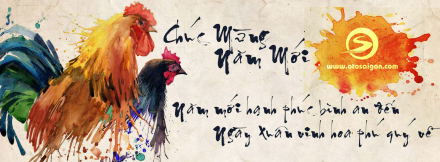 Chúc Mừng
Năm Mới
www.otosaigon.com
Năm mới hạnh phúc bình an đến
Ngày xuân vinh hoa phú quý về